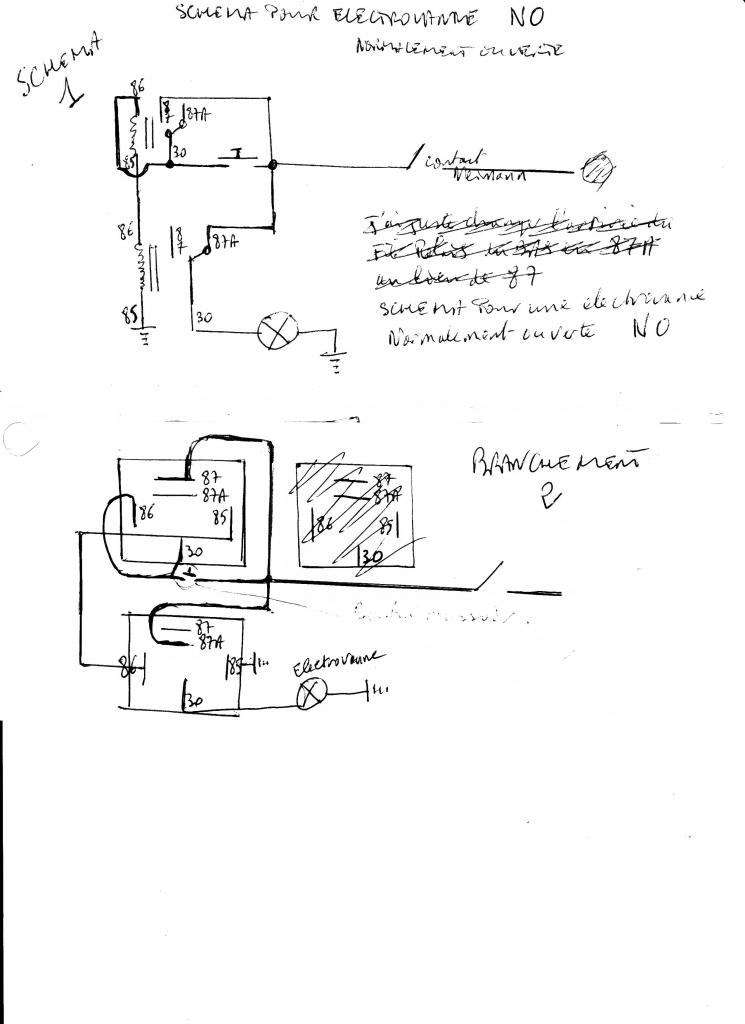 SCHEMA POUR ELECTROVANNE NO
NORMALEMENT OUVERTE
SCHEMA
1
86
87
87A
85
30
contact
Neimann
86
87
87A
85
30
J'ai juste changé l'arrivée du
Fil Relais en 87A
au lieu de 87
SCHEMA Pour une électrovanne
Normalement ouverte NO
BRANCHEMENT
2
87
87A
86 85
30
87
87A
86 85
30
87
87A
86 85
30
Electrovanne